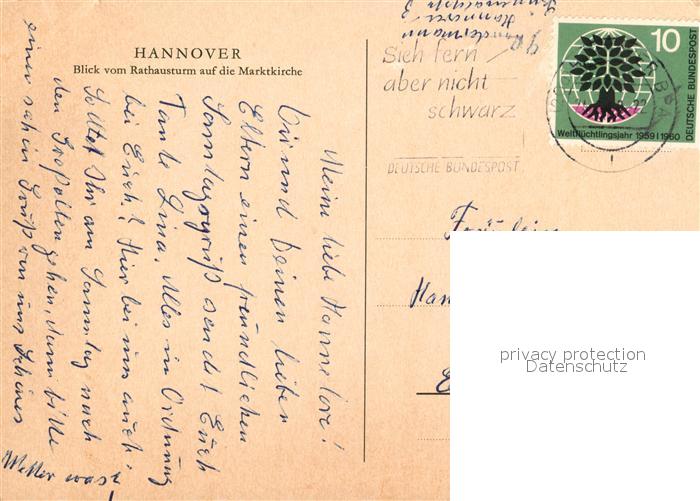 HANNOVER
Blick vom Rathausturm auf die Marktkirche
Meine liebe Hannelore!
Dir und Deinen lieben
Eltern einen freundlichen
Sonntagsgruß sendet Euch
Tante Lina. Alles in Ordnung
bei Euch? Hier bei uns auch.
Solltet Ihr am Sonntag nach
den Großeltern gehen, dann bitte
einen schönen Gruß von uns. Schönes
Wetter was?
Hannover
Sich fern
aber nicht
schwarz
DEUTSCHE BUNDESPOST
10
DEUTSCHE BUNDESPOST
Weltflüchtlingsjahr 1959 | 1960
Fräulein
Han
privacy protection
Datenschutz